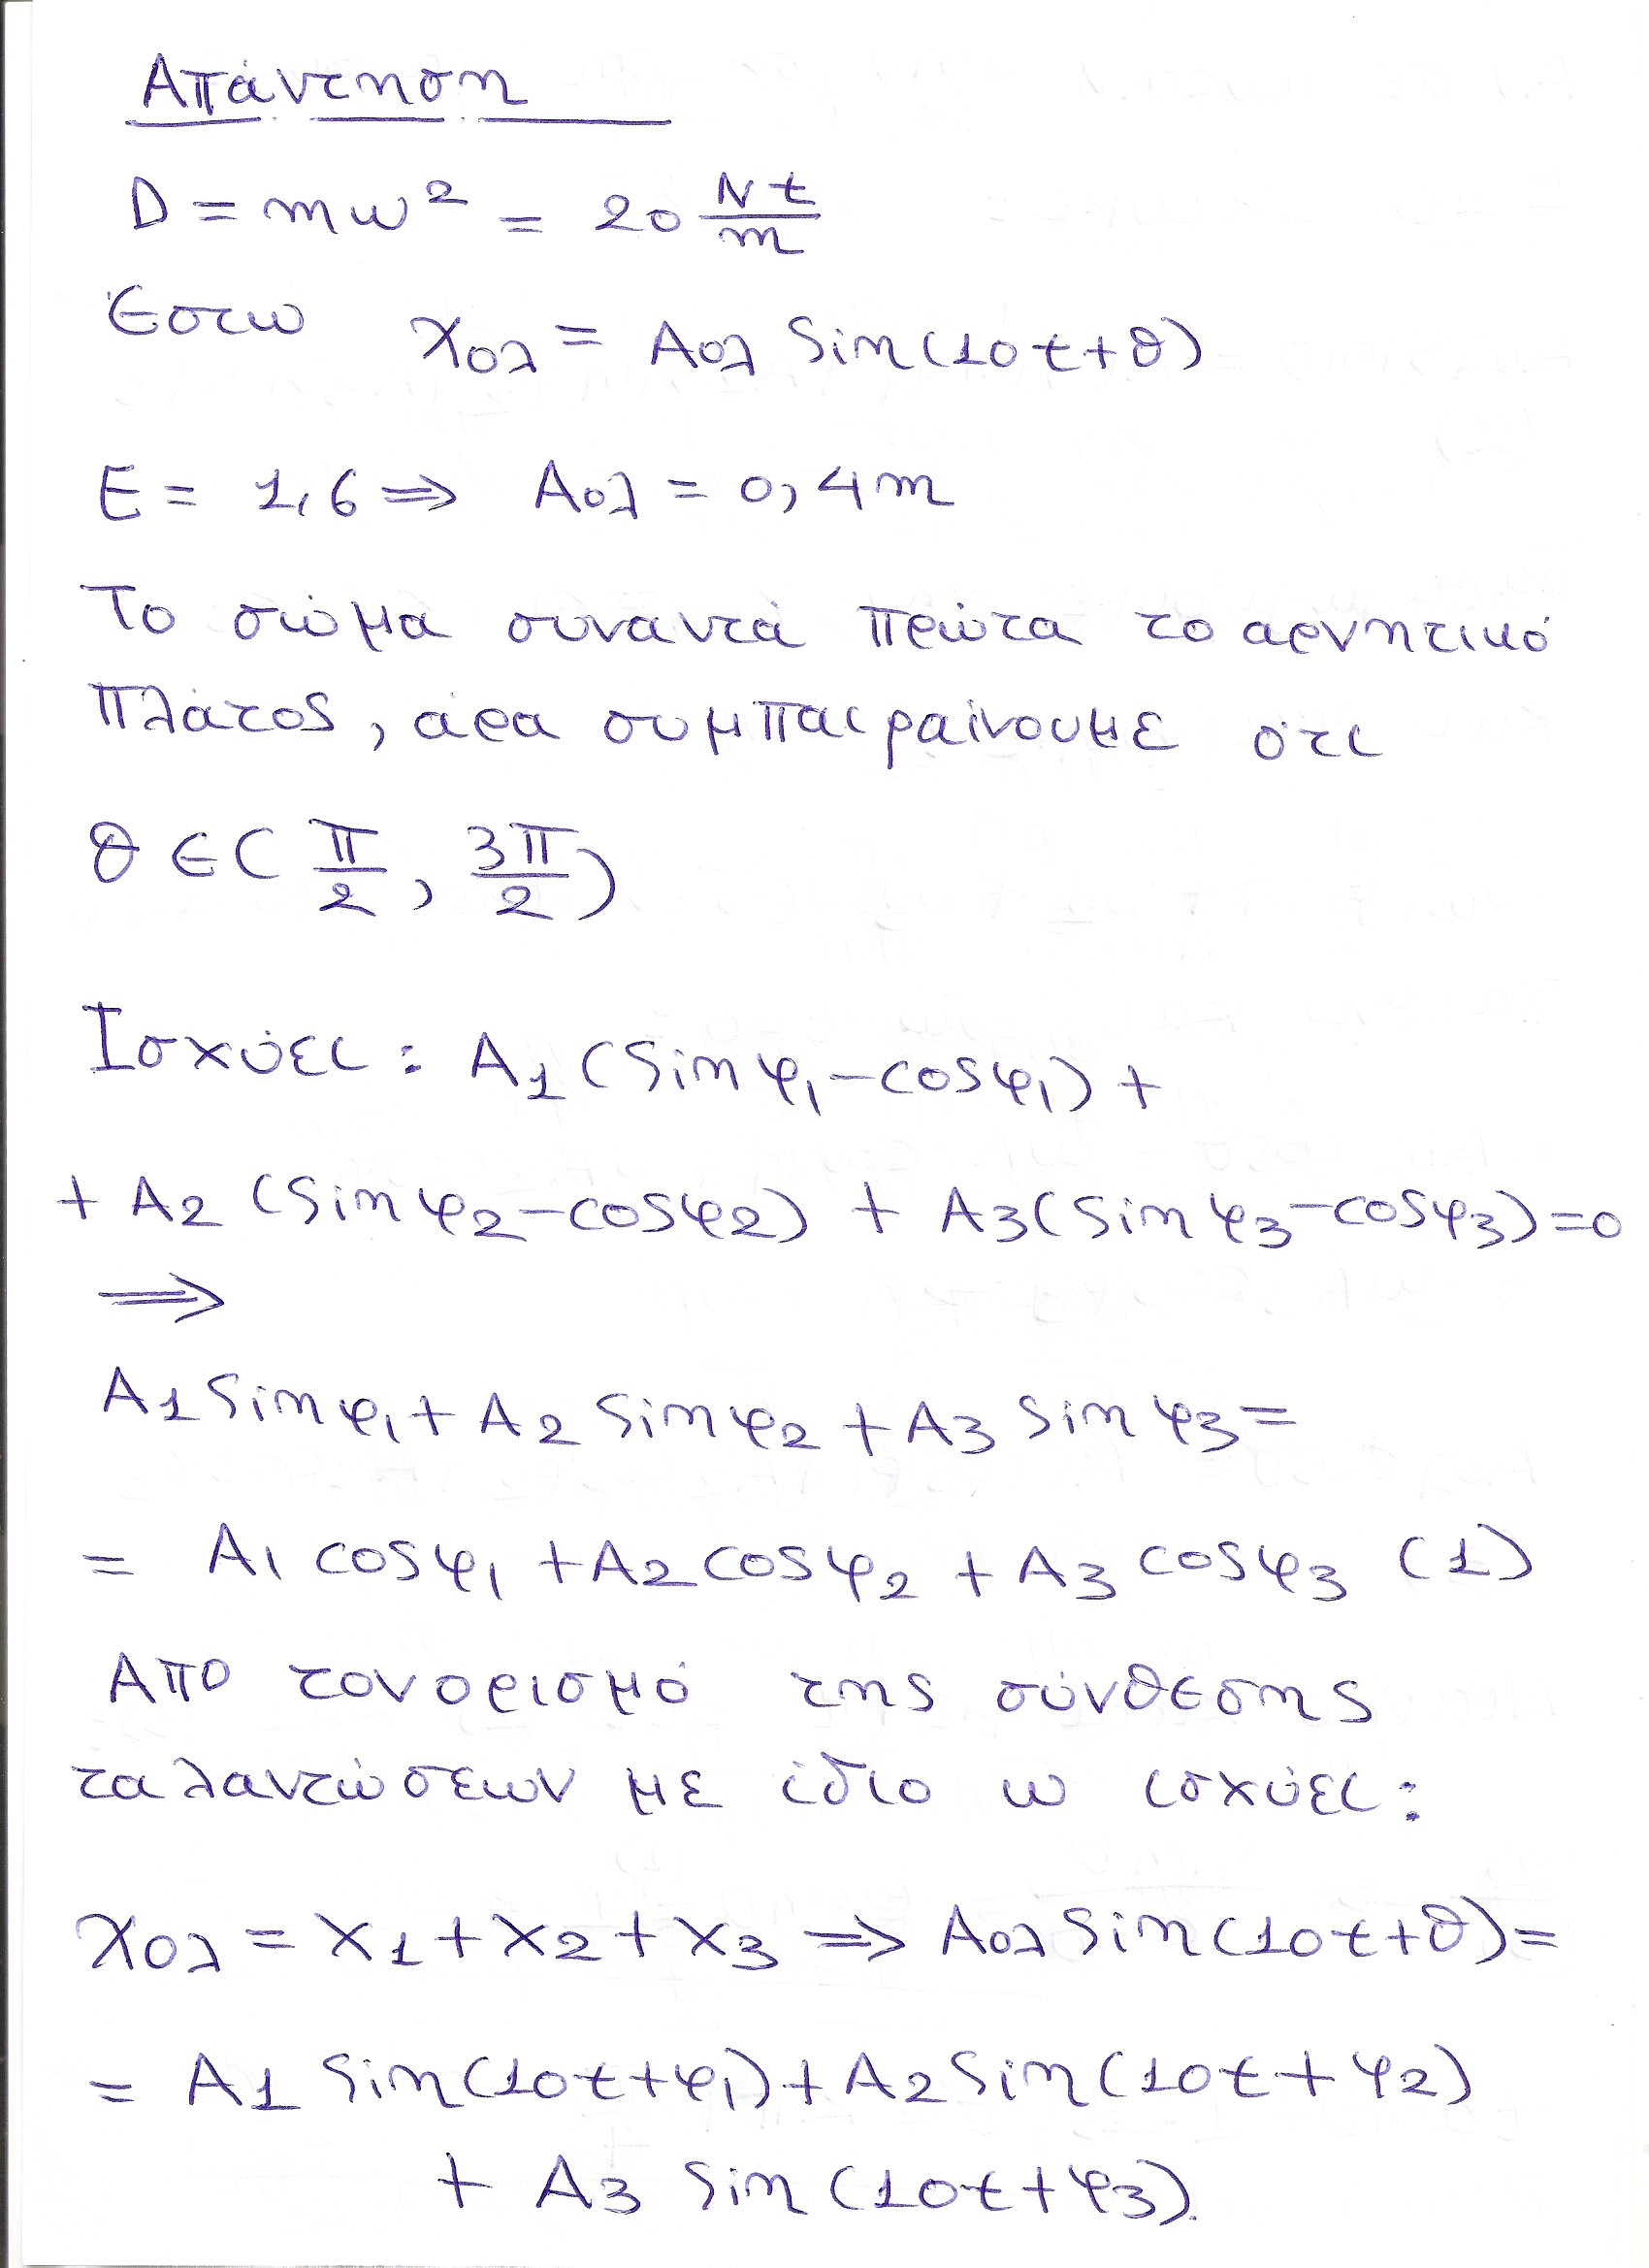 Απάντηση
D = mω² = 20 Nt/m
Έστω χολ = Αολ sin(10t+θ)
E = 1,6 ⇒ Αολ = 0,4m
Το σώμα συναντά πρώτα το αρνητικό
πλάτος, άρα συμπαιραίνουμε ότι
θ ∈ (π/2, 3π/2)
Ισχύει: A1 (sinφ1-cosφ1) +
+ A2 (sinφ2-cosφ2) + A3(sinφ3-cosφ3)=0
⇒
A1 sinφ1 + A2 sinφ2 + A3 sinφ3 =
= A1 cosφ1 + A2 cosφ2 + A3 cosφ3 (1)
Απο τον ορισμό της σύνθεσης
ταλαντώσεων με ίδιο ω ισχύει:
χολ = x1 + x2 + x3 ⇒ Αολ sin(10t+θ) =
= A1 sin(10t+φ1) + A2 sin(10t+φ2)
+ A3 sin(10t+φ3).